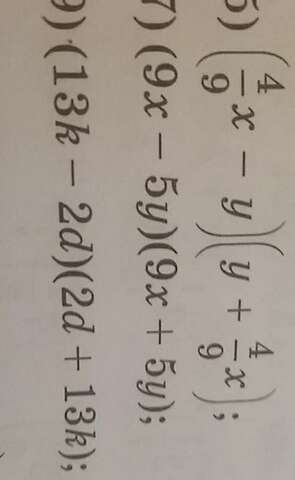 5) (4/9 x − y)(y + 4/9 x);
7) (9x − 5y)(9x + 5y);
9) (13k − 2d)(2d + 13k);